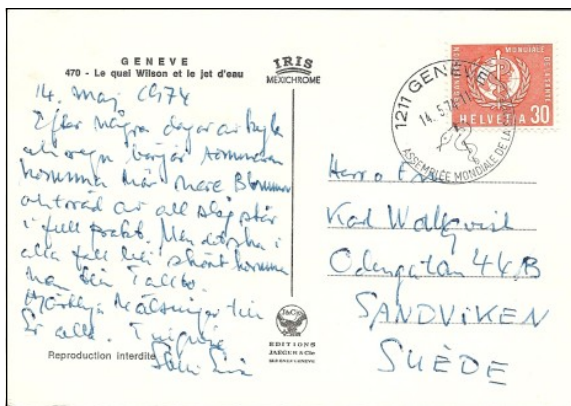 GENEVE
470 - Le quai Wilson et le jet d'eau
IRIS
MEXICHROME
14. maj 1974
Efter några dagar av kyla
och regn börjar sommaren
komma här nere. Blommor
och träd av all slag står
i full prakt. Men det ska i
alla fall bli skönt komma
hem
Hjärtliga hälsningar till
Er alla.
Reproduction interdite
EDITIONS
JAEGER & Cie
1211 GENEVE
14.5.74-11
ASSEMBLEE MONDIALE DE LA
ORGANISATION MONDIALE DE LA SANTE
HELVETIA 30
Herr o Fru
Karl Wallqvist
Odengatan 44B
SANDVIKEN
SUÈDE